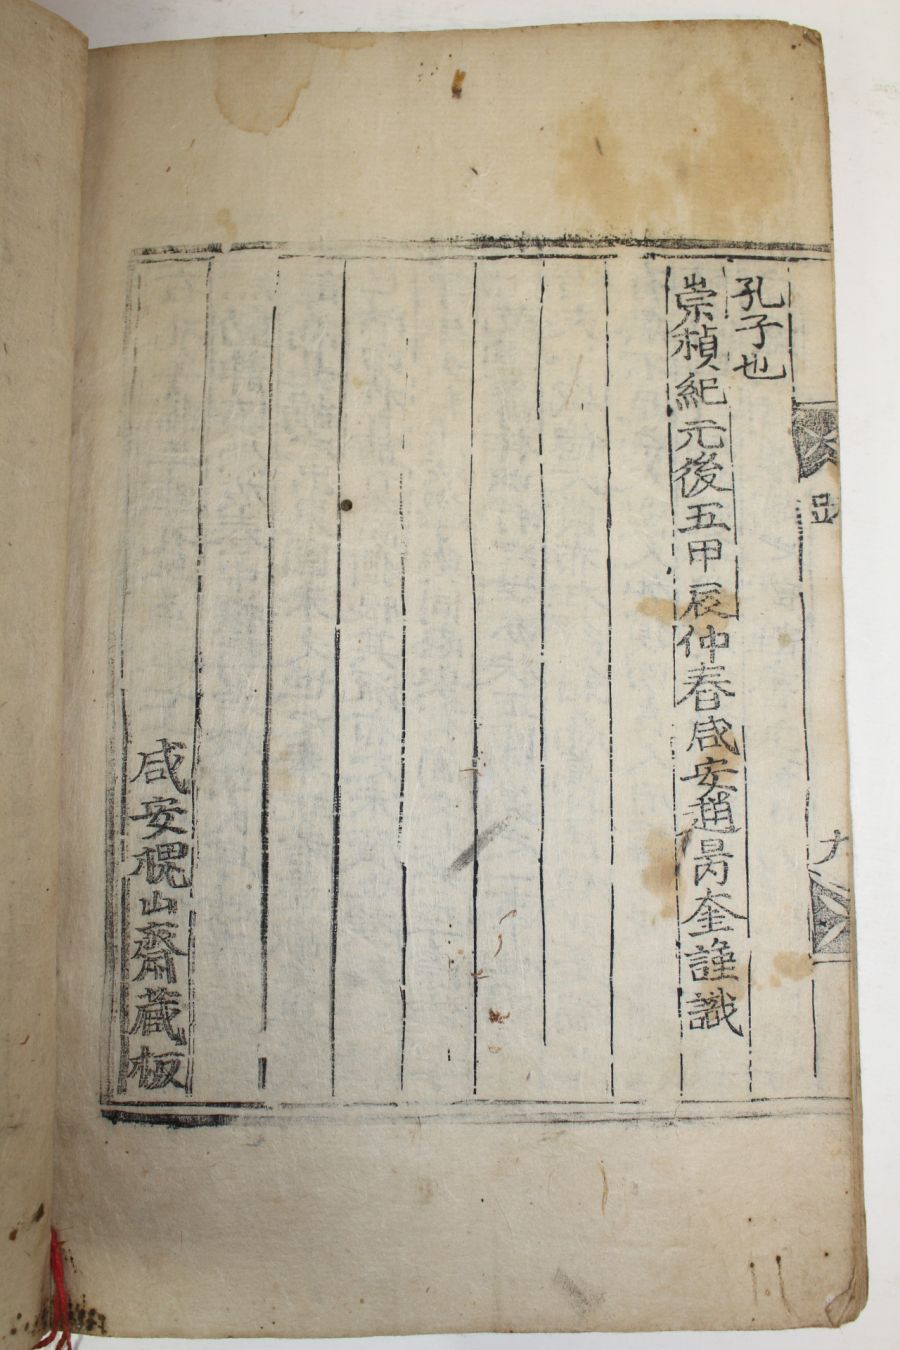 跋
九
孔子也
崇禎紀元後五甲辰仲春咸安趙昺奎謹識
咸安槐山齋藏板